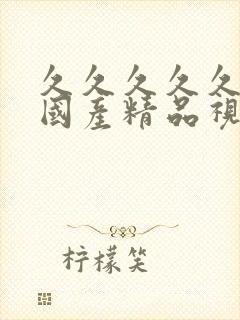 久久久久久
國產精品視
柠檬笑